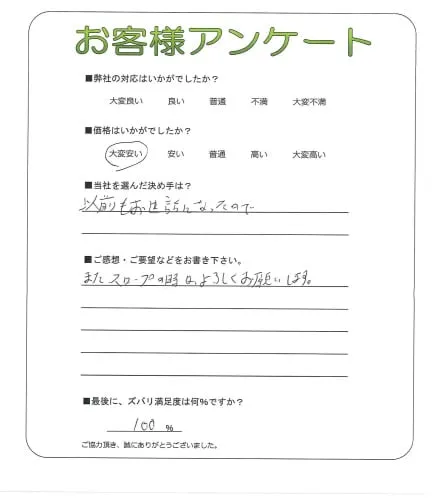 お客様アンケート
■弊社の対応はいかがでしたか？
大変良い 良い 普通 不満 大変不満
■価格はいかがでしたか？
大変安い 安い 普通 高い 大変高い
■当社を選んだ決め手は？
以前もお世話になったので
■ご感想・ご要望などをお書き下さい。
またスロープの時は、よろしくお願いします。
■最後に、ズバリ満足度は何％ですか？
100 ％
ご協力頂き、誠にありがとうございました。